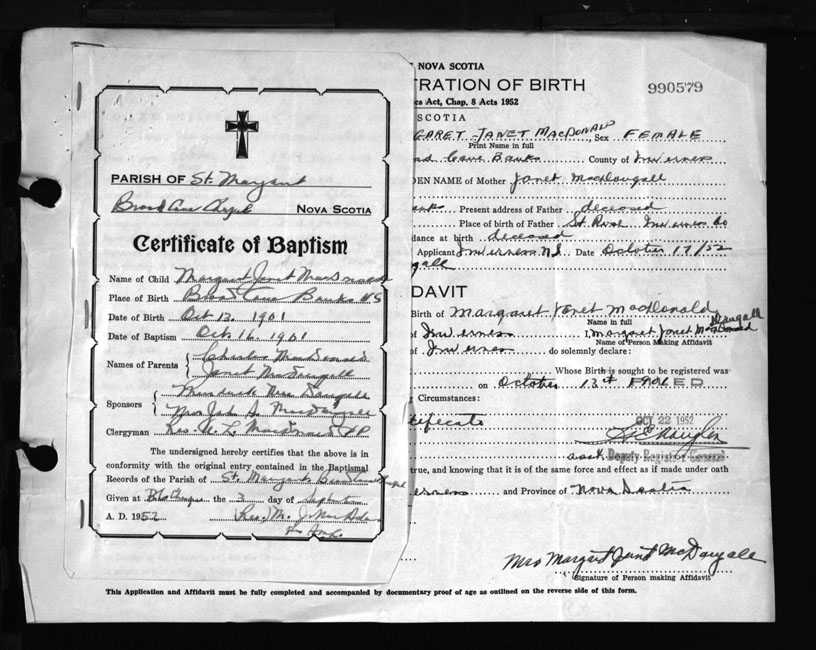 PARISH OF St. Margaret
Broad Cove Chapel NOVA SCOTIA
Certificate of Baptism
Name of Child Margaret Janet MacDonald
Place of Birth Broad Cove Banks N S
Date of Birth Oct 13, 1901
Date of Baptism Oct 16, 1901
Names of Parents { Charles MacDonald
Janet MacDougall
Sponsors {
Mrs
Clergyman Rev. MacDonald P P
The undersigned hereby certifies that the above is in
conformity with the original entry contained in the Baptismal
Records of the Parish of St. Margaret Broad Cove Chapel
Given at the 3 day of September
A. D. 1952 (Rev.) M. J.
NOVA SCOTIA
TRATION OF BIRTH
990579
cs Act, Chap. 8 Acts 1952
SCOTIA
GARET JANET MACDONALD, Sex FEMALE
Print Name in full
Cove Banks County of Inverness
DEN NAME of Mother Janet MacDougall
Present address of Father deceased
Place of birth of Father St Rose Inverness Co
dance at birth deceased
Applicant Inverness N.S. Date October 17/52
gall
DAVIT
Birth of Margaret Janet MacDonald
Name in full
of Inverness I, Margaret Janet MacDonald MacDougall
Name of Person Making Affidavit
of Inverness do solemnly declare:
Whose Birth is sought to be registered was
on October 13th 1901
Circumstances:
tificate
OCT 22 1952
Deputy Registrar General
true, and knowing that it is of the same force and effect as if made under oath
erness and Province of Nova Scotia
Mrs Margaret Janet MacDougall
Signature of Person making Affidavit
This Application and Affidavit must be fully completed and accompanied by documentary proof of age as outlined on the reverse side of this form.